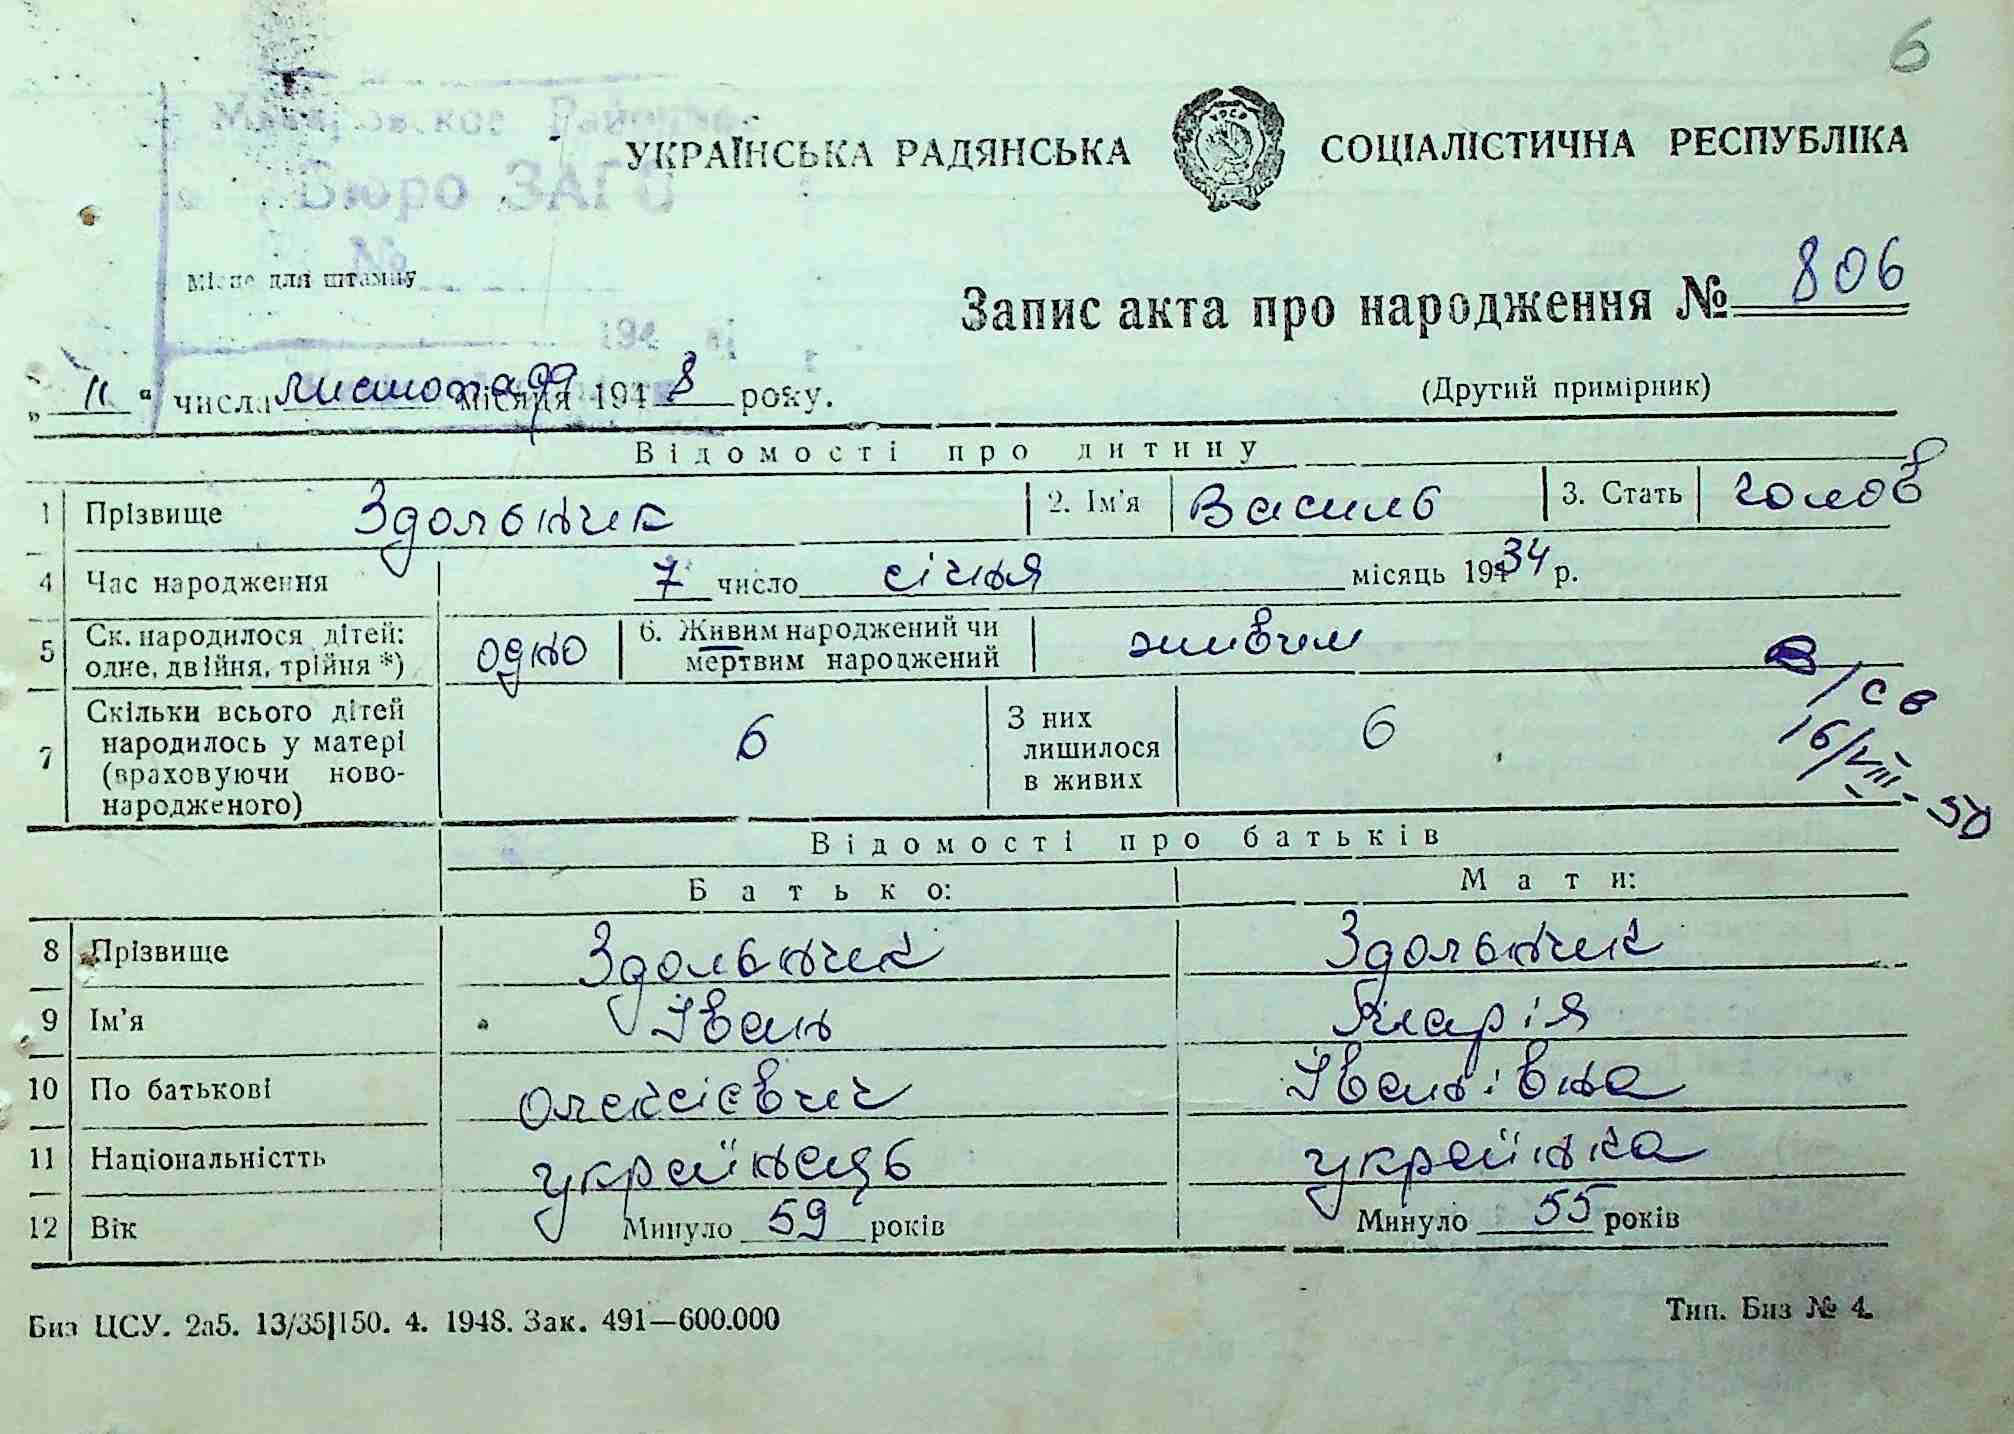 6
Макаровское Район
Бюро ЗАГС
№
УКРАЇНСЬКА РАДЯНСЬКА СОЦІАЛІСТИЧНА РЕСПУБЛІКА
УРСР
Місце для штампу
194
Запис акта про народження № 806
„ 11 “ числа листопада місяця 1948 року.
(Другий примірник)
Відомості про дитину
1 Прізвище Здольник 2. Ім'я Василь 3. Стать чолов
4 Час народження 7 число січня місяць 1934 р.
5 Ск. народилося дітей: одне, двійня, трійня *) одно 6. Живим народжений чи мертвим народжений живим
7 Скільки всього дітей народилось у матері (враховуючи ново-народженого) 6 З них лишилося в живих 6
в/св
16/VIII-50
Відомості про батьків
Батько: Мати:
8 Прізвище Здольник Здольник
9 Ім'я Іван Марія
10 По батькові Олексієвич Іванівна
11 Національністть українець українка
12 Вік Минуло 59 років Минуло 55 років
Биз ЦСУ. 2а5. 13/35|150. 4. 1948. Зак. 491—600.000
Тип. Биз № 4.